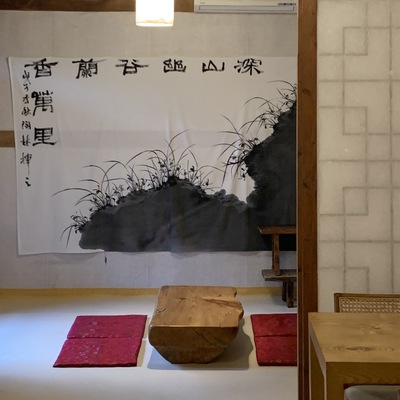 深山幽谷蘭香
萬
里